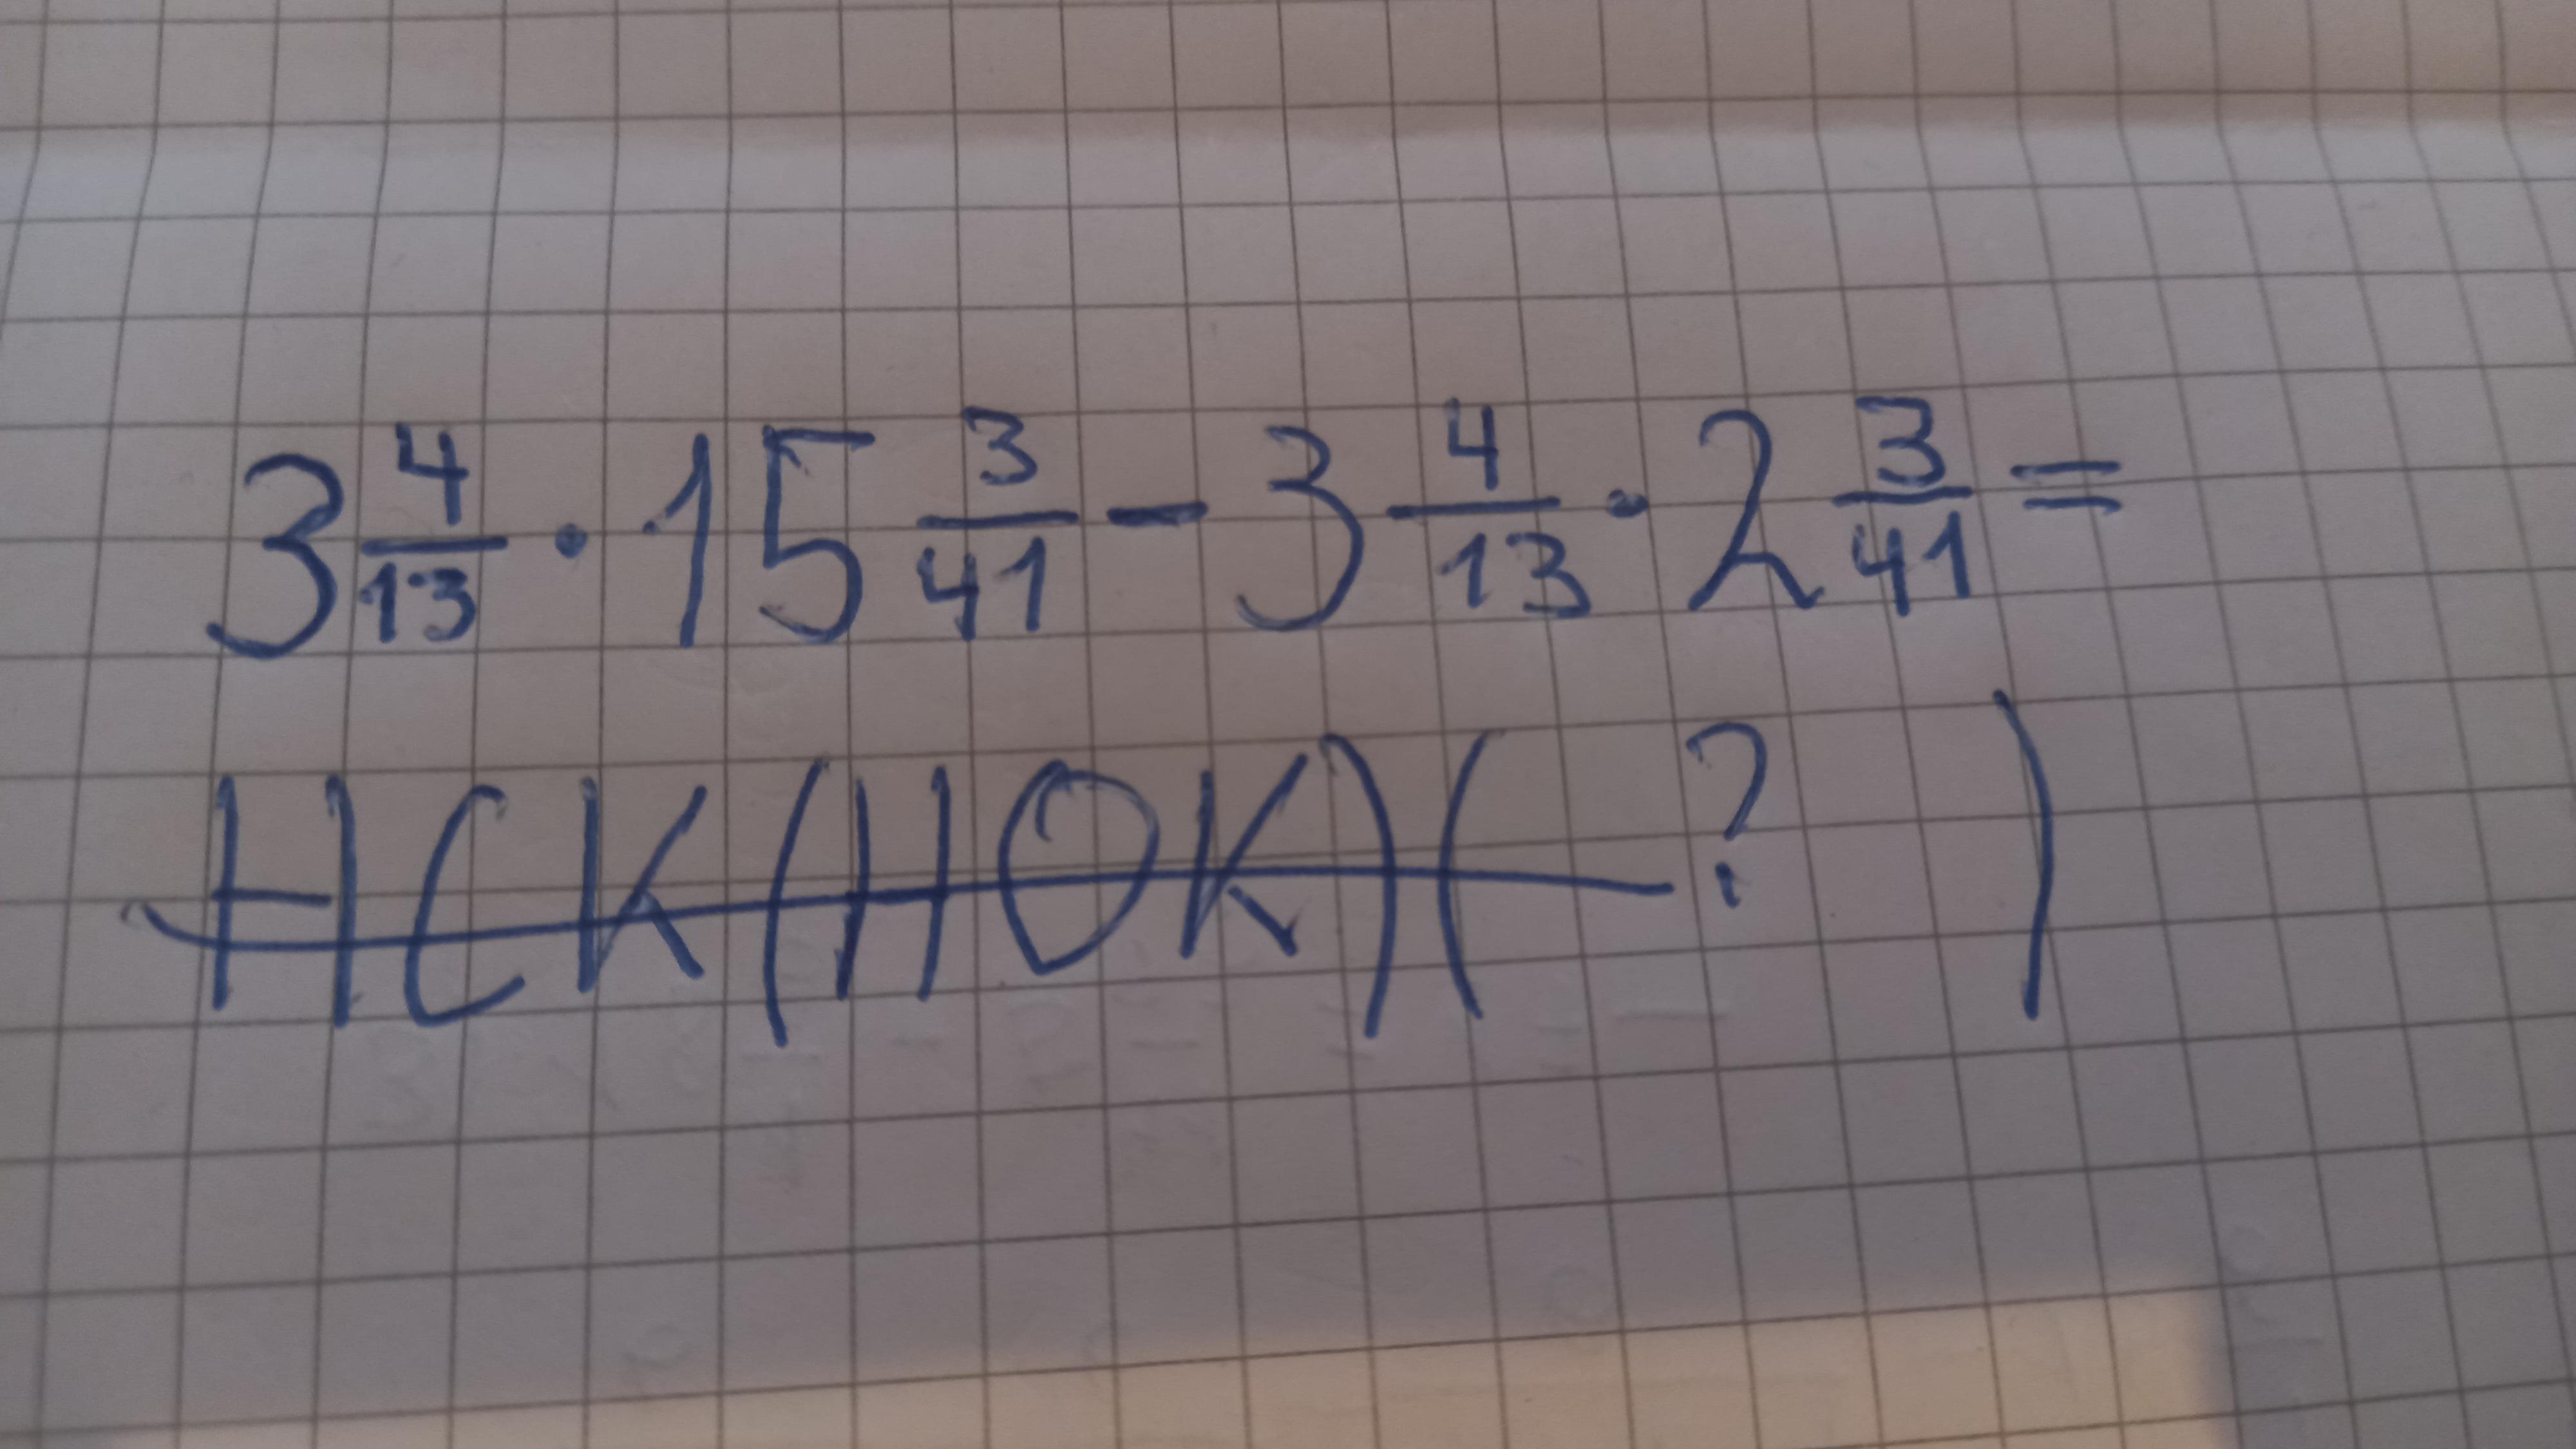 3 4/13 · 15 3/41 - 3 4/13 · 2 3/41 =
НСК(НОК)( ? )